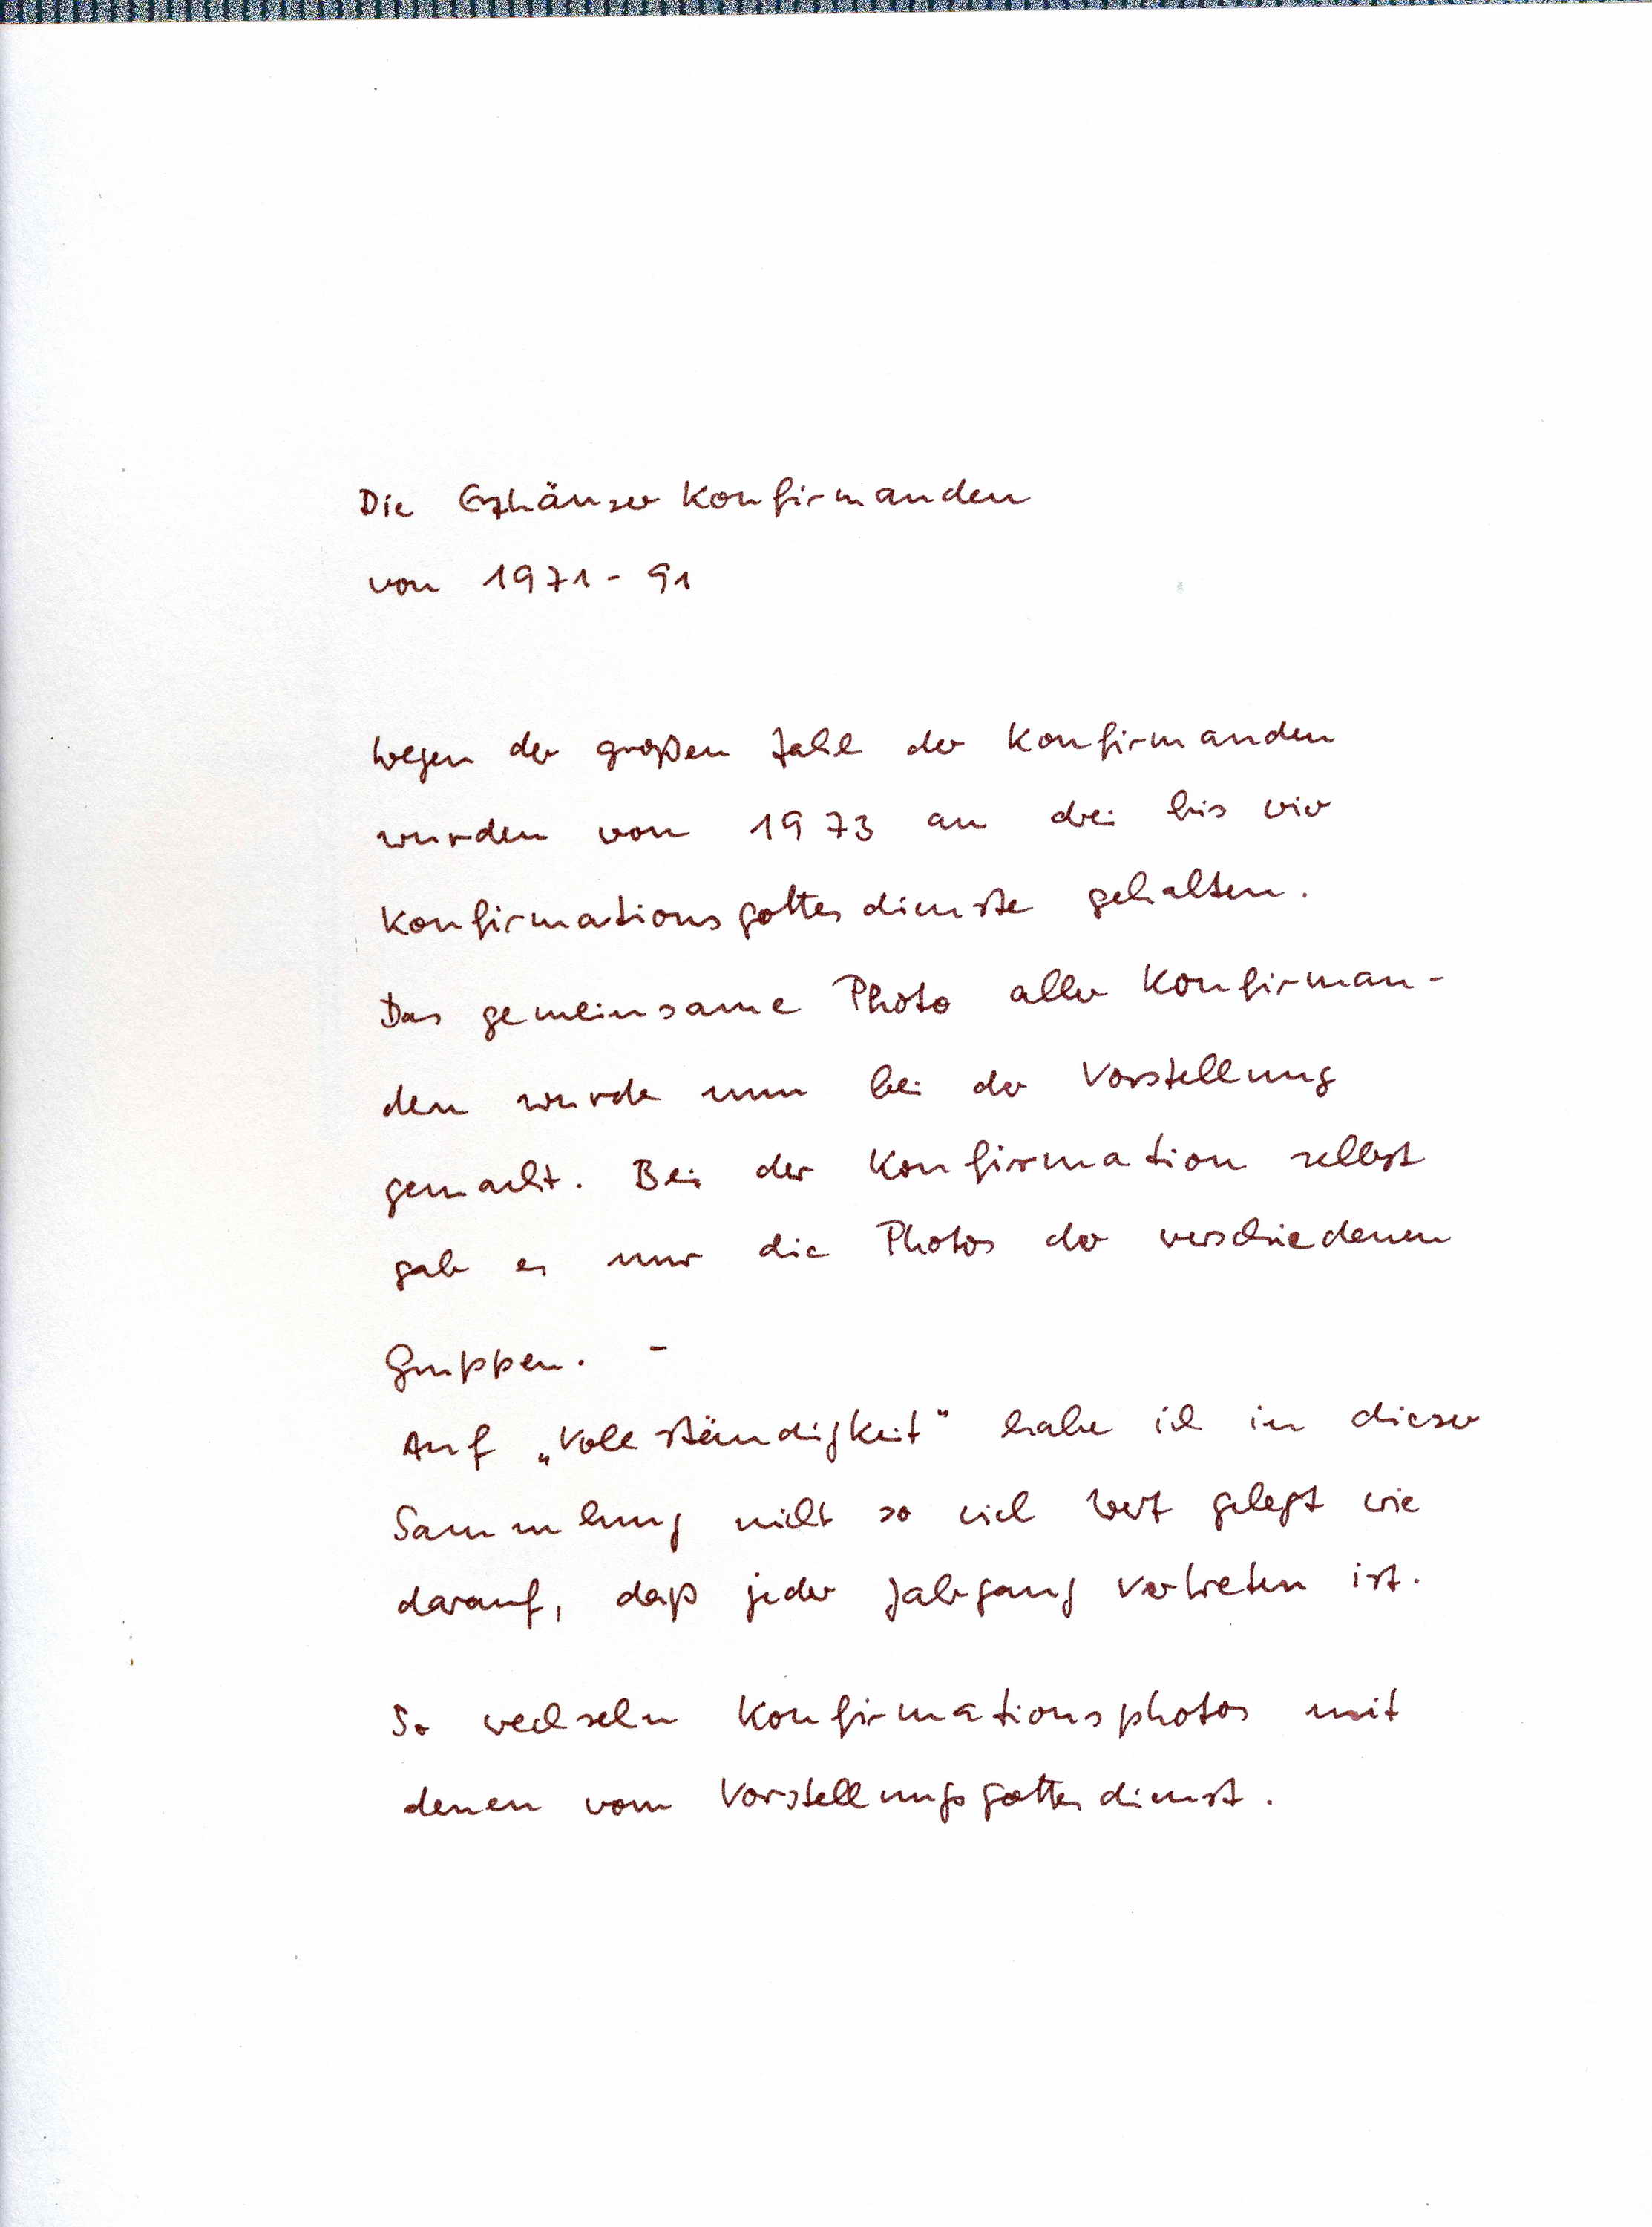 Die Erzhäuser Konfirmanden
von 1971 - 91
Wegen der großen Zahl der Konfirmanden
wurden von 1973 an drei bis vier
Konfirmationsgottesdienste gehalten.
Das gemeinsame Photo aller Konfirman-
den wurde nun bei der Vorstellung
gemacht. Bei der Konfirmation selbst
gab es nur die Photos der verschiedenen
Gruppen. -
Auf „Vollständigkeit" habe ich in dieser
Sammlung nicht so viel Wert gelegt wie
darauf, daß jeder Jahrgang vertreten ist.
So wechseln Konfirmationsphotos mit
denen vom Vorstellungsgottesdienst.